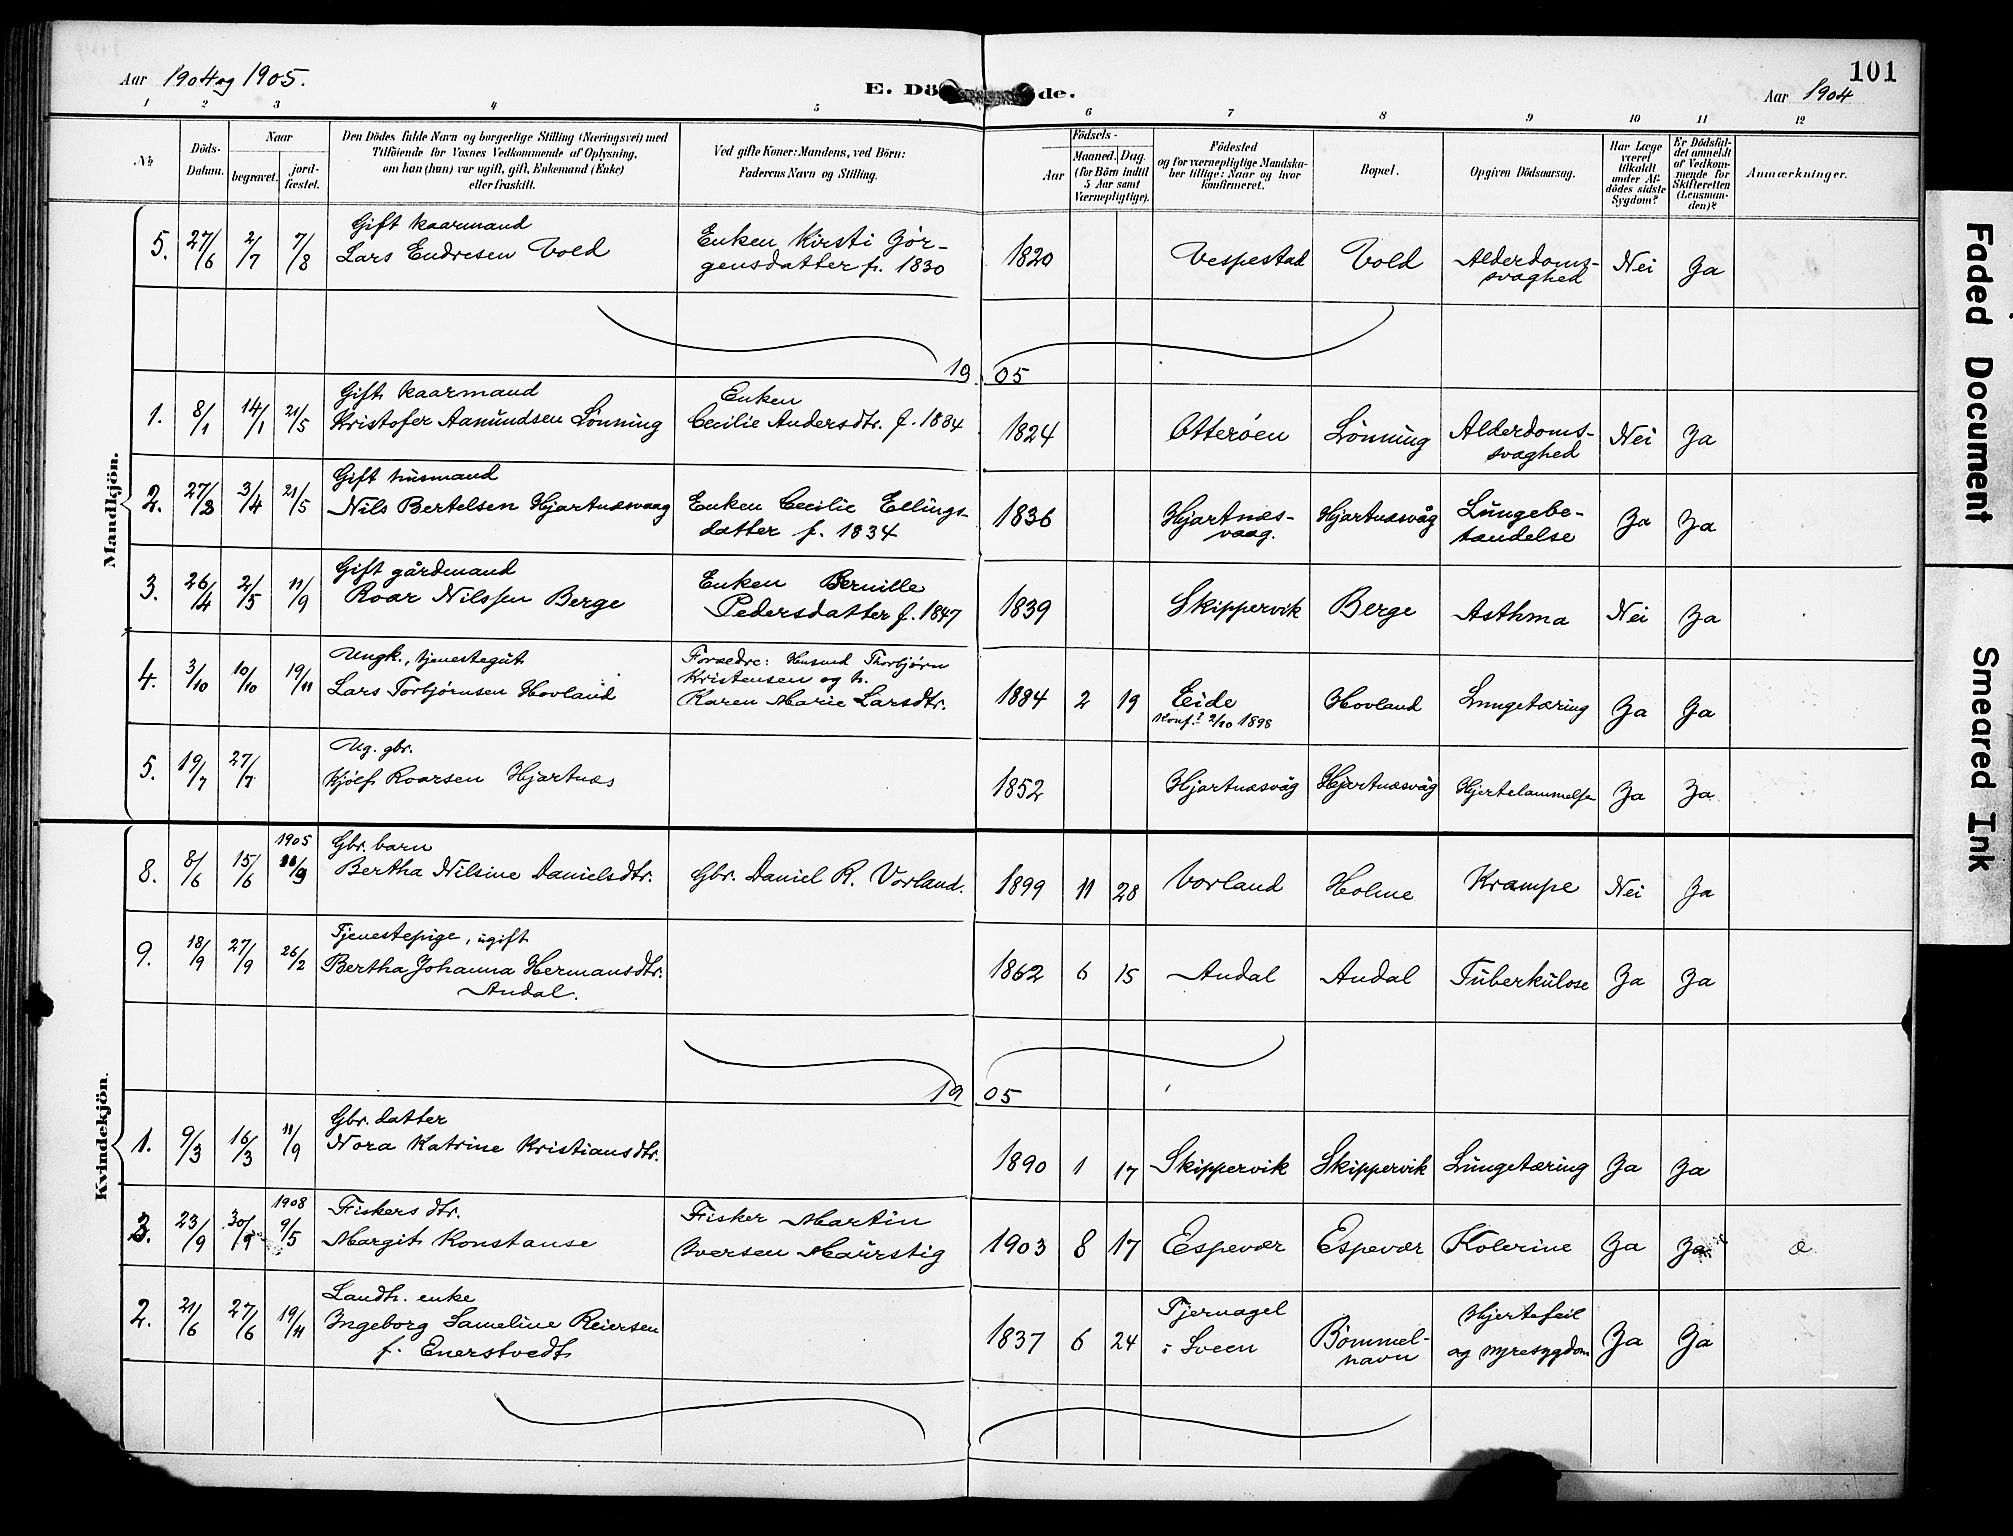 Aar 1904 og 1905.
E. Dö de.
101
Aar 1904
1 2 3 4 5 6 7 8 9 10 11 12
No
Döds-Datum.
Naar
begravet.
jord-fæstet.
Den Dödes fulde Navn og borgerlige Stilling (Næringsvei) med
Tilföiende for Voxnes Vedkommende af Oplysning,
om han (hun) var ugift, gift, Enkemand (Enke)
eller fraskilt.
Ved gifte Koner: Mandens, ved Börn:
Faderens Navn og Stilling.
Födsels-
Aar
Maaned. Dag.
(for Börn indtil
5 Aar samt
Værnepligtige).
Födested
og for værnepligtige Mandska-
ber tillige: Naar og hvor
konfirmeret.
Bopæl.
Opgiven Dödsaarsag.
Har Læge
været
tilkaldt
under Af-
dödes sidste
Sygdom?
Er Dödsfal-
det anmeldt
af Vedkom-
mende for
Skifteretten
(Lensman-
den)?
Anmærkninger.
Mandkjön.
5. 27/6 2/7 7/8 Gift kaarmand
Lars Endresen Vold
Enken Kirsti Jör-
gensdatter f. 1830
1820 Vespestad Vold Alderdoms-
svaghed Nei Ja
1905
1. 8/1 14/1 21/5 Gift kaarmand
Kristofer Aamundsen Lönning
Enken
Cecilie Andersdtr. f. 1834
1824 Otteröen Lönning Alderdoms-
svaghed Nei Ja
2. 27/3 3/4 21/5 Gift husmand
Nils Bertelsen Hjartnæsvaag
Enken Cecilie Ellings-
datter f. 1834
1836 Hjartnæs-
vaag. Hjartnæsvåg Lungebe-
tændelse Ja Ja
3. 26/4 2/5 11/9 Gift gårdmand
Roar Nilssen Berge
Enken Bernille
Pedersdatter f. 1847
1839 Skippervik Berge Asthma Nei Ja
4. 3/10 10/10 19/11 Ungk., tjenestegut
Lars Torbjörnsen Hovland
Foræedre: Husmd Thorbjörn
Kristensen og h.
Karen Marie Larsdtr.
1884 2 19 Eide
Konf. 2/10 1898 Hovland Lungetæring Ja Ja
5. 19/7 27/7 Ug. gbr.
Kjölf Roarsen Hjartnæs
1852 Hjartnæsvåg Hjartnæsvåg Hjertelammelse Ja Ja
Kvindekjön.
8. 8/6 15/6 1905 11/9 Gbr. barn
Bertha Nilsine Danielsdtr.
Gbr. Daniel R. Vorland.
1899 11 28 Vorland Holme Krampe Nei Ja
9. 18/9 27/9 26/2 Tjenestepige, ugift
Bertha Johanna Hermansdtr.
Andal.
1862 6 15 Andal Andal Tuberkulose Ja Ja
1905
1. 9/3 16/3 11/9 Gbr. datter
Nora Katrine Kristiansdtr.
1890 1 17 Skippervik Skippervik Lungetæring Ja Ja
3. 23/9 30/9 1908 9/5 Fiskers dtr.
Margit Konstanse
Fisker Martin
Iversen Maurstig
1903 8 17 Espevær Espevær Kolerine Ja Ja
2. 21/6 27/6 19/11 Landh. enke
Ingeborg Sameline Reiersen
f. Enerstvedt
1837 6 24 Tjernagel
i Sveen Bömmel-
havn Hjertefeil
og nyresygdom Ja Ja
Faded Document
Smeared Ink